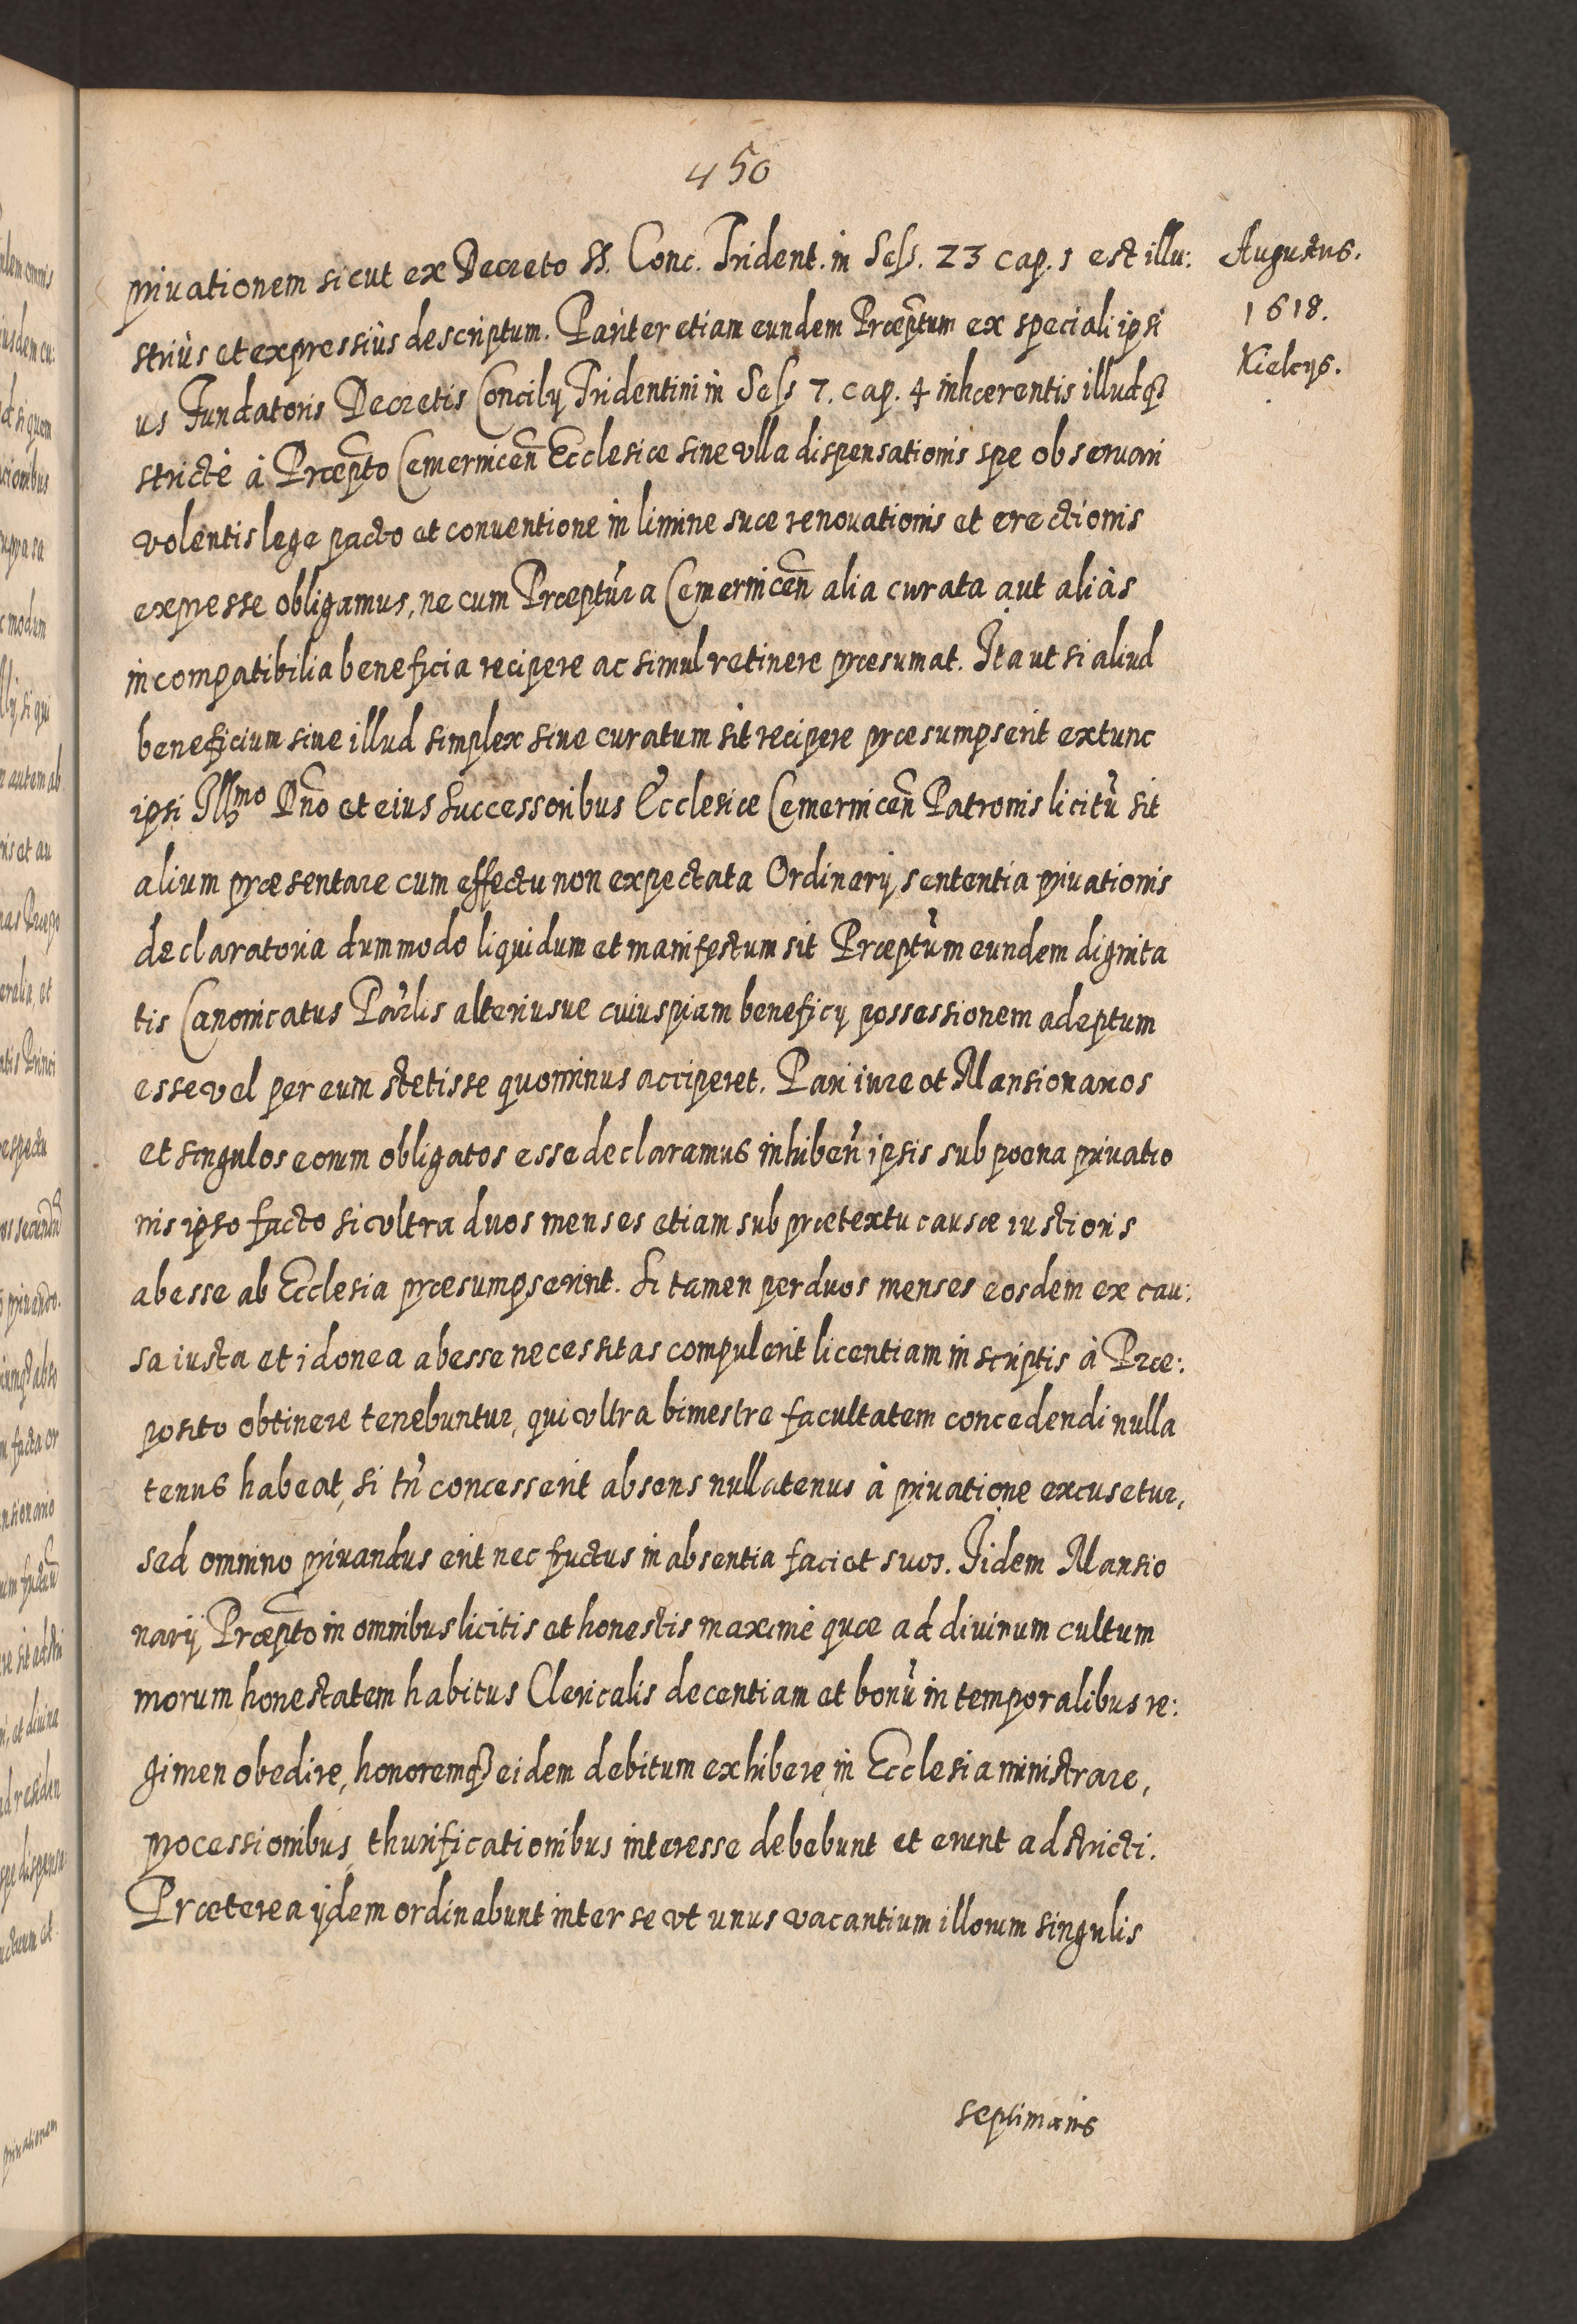 450
privationem sicut ex Decreto SS. Conc. Trident. in Sess. 23 cap. 1 est illu:
strius et expressius descriptum. Pariter etiam eundem Præptum ex speciali ipsi
us Fundatoris Decretis Concilÿ Tridentini in Sess 7. cap. 4 inhærentis illudq3
strictè à Præpto Cemernicen Ecclesiæ sine vlla dispensationis spe obseruari
volentis lege pacto et conventione in limine suæ renouationis et erectionis
expresse obligamus, ne cum Præptura Cemernicen alia curata aut aliàs
incompatibilia beneficia recipere ac simul retinere præsumat. Ita ut si aliud
beneficium siue illud simplex siue curatum sit recipere præsumpserit extunc
ipsi Illmo Dno et eius Successoribus Ecclesiæ Cemernicen Patronis licitũ sit
alium præsentare cum effectu non expectata Ordinarÿ sententia priuationis
declaratoria dummodo liquidum et manifestum sit Præptum eundem dignita
tis Canonicatus Parlis alteriusue cuiuspiam beneficÿ possessionem adeptum
esse vel per eum stetisse quominus acciperet. Pari iure et Mansionarios
et singulos eorum obligatos esse declaramus inhiben ipsis sub poena priuatio
nis ipso facto si vltra duos menses etiam sub prætextu causæ iustioris
abesse ab Ecclesia præsumpserint. Si tamen per duos menses eosdem ex cau:
sa iusta et idonea abesse necessitas compulerit licentiam in scriptis à Præ:
posito obtinere tenebuntur, qui vltra bimestre facultatem concedendi nulla
tenus habeat, si tñ concesserit absens nullatenus à priuatione excusetur,
sed omnino priuandus erit nec fructus in absentia faciet suos. Iidem Mansio
narÿ Præpto in omnibus licitis et honestis maximè quæ ad divinum cultum
morum honestatem habitus Clericalis decentiam et bonũ in temporalibus re:
gimen obedire, honoremq3 eidem debitum exhibere, in Ecclesia ministrare,
processionibus, thurificationibus interesse debebunt et erunt adstricti.
Præterea ÿdem ordinabunt inter se vt unus vacantium illorum singulis
septimanis
Augustus.
1618.
Kielcÿs.